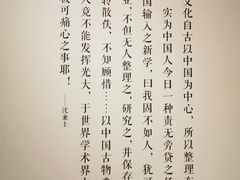 文化自古以中国为中心，所以整理东
实为中国人今日一种责无旁贷之
国输入之新学，曰我固不如人，犹可
业，不但无人整理之，研究之，并保存
转散佚，不知顾惜……以中国古物典
人竟不能发挥光大，于世界学术界
极可痛心之事耶！
——沈兼士